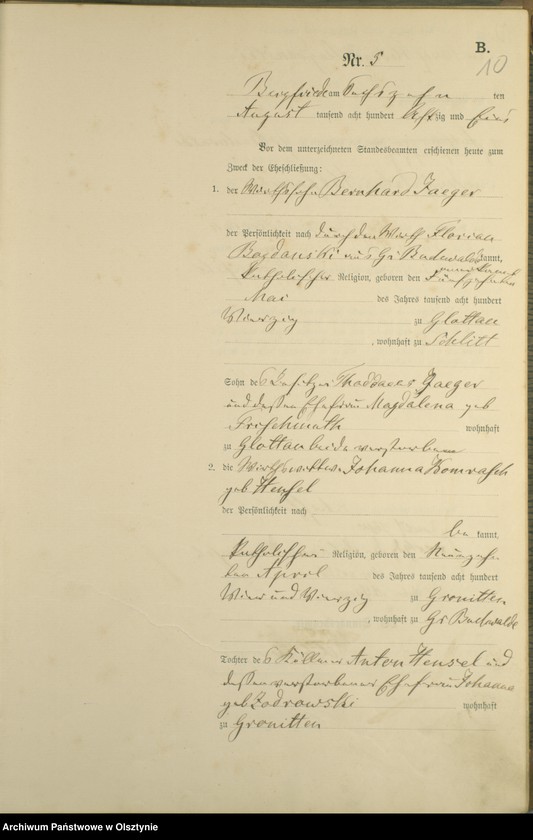 B.
10
Nr. 5
Bergfriede am Sechszehn ten
August tausend acht hundert achtzig und eins
Vor dem unterzeichneten Standesbeamten erschienen heute zum
Zweck der Eheschließung:
1. der Wirthssohn Bernhard Jaeger
der Persönlichkeit nach durch den Wirth Florian
Bogdanski aus Gr Buchwalde kannt,
katholischer Religion, geboren den Fünfzehnten
Mai des Jahres tausend acht hundert
Vierzig zu Glottau
, wohnhaft zu Schlitt
Sohn des Besitzer Thaddaeus Jaeger
und dessen Ehefrau Magdalena geb
wohnhaft
zu Glottau beide verstorben
2. die Wirthswittwe Johanna Komrasch
geb Hensel
der Persönlichkeit nach
be kannt,
katholischer Religion, geboren den Neunzehn
ten April des Jahres tausend acht hundert
Vier und Vierzig zu Gronitten
, wohnhaft zu Gr Buchwalde
Tochter des Köllmer Anton Hensel und
dessen verstorbener Ehefrau Johanna
geb Zodrowski wohnhaft
zu Gronitten
Archiwum Państwowe w Olsztynie